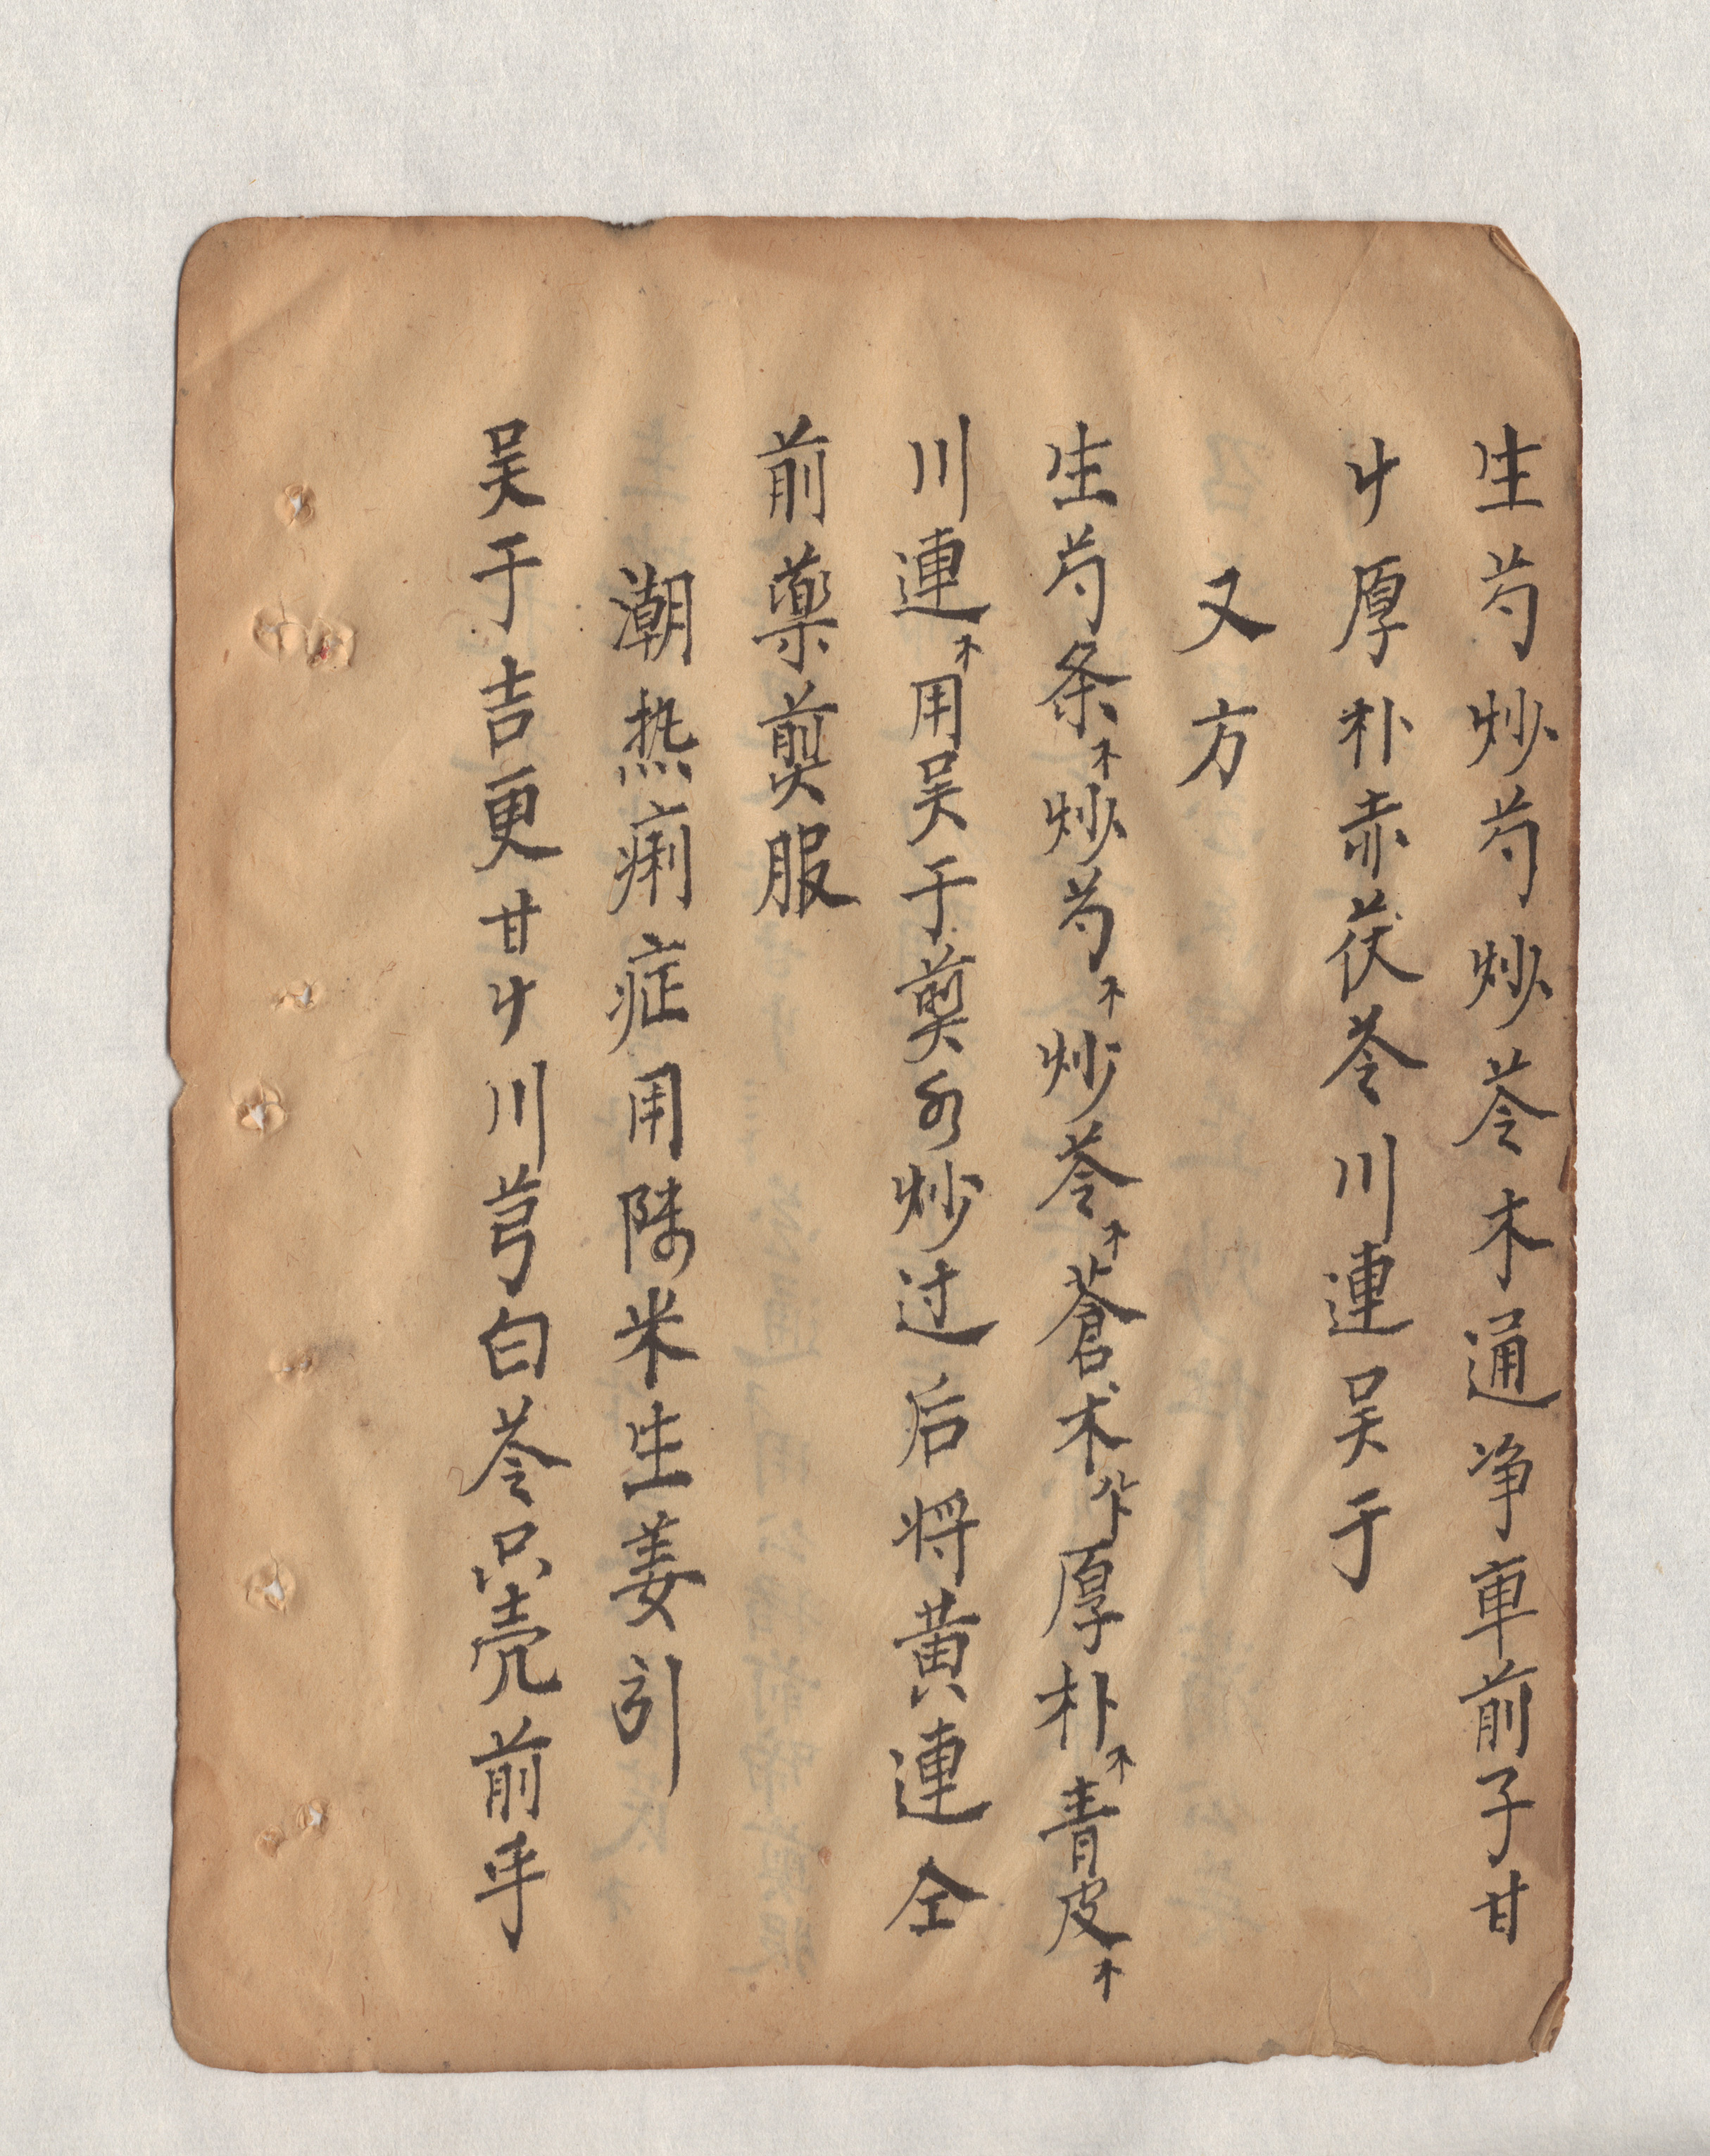 生芍炒芍炒苓木通净車前子甘
丩厚朴赤茯苓川連吴于
又方
生芍条炒芍炒苓蒼术厚朴青皮
川連用吴于煎水炒过后将黄連仝
前藥煎服
潮热痢症用陳米生姜引
吴于吉更甘丩川芎白苓只壳前乎